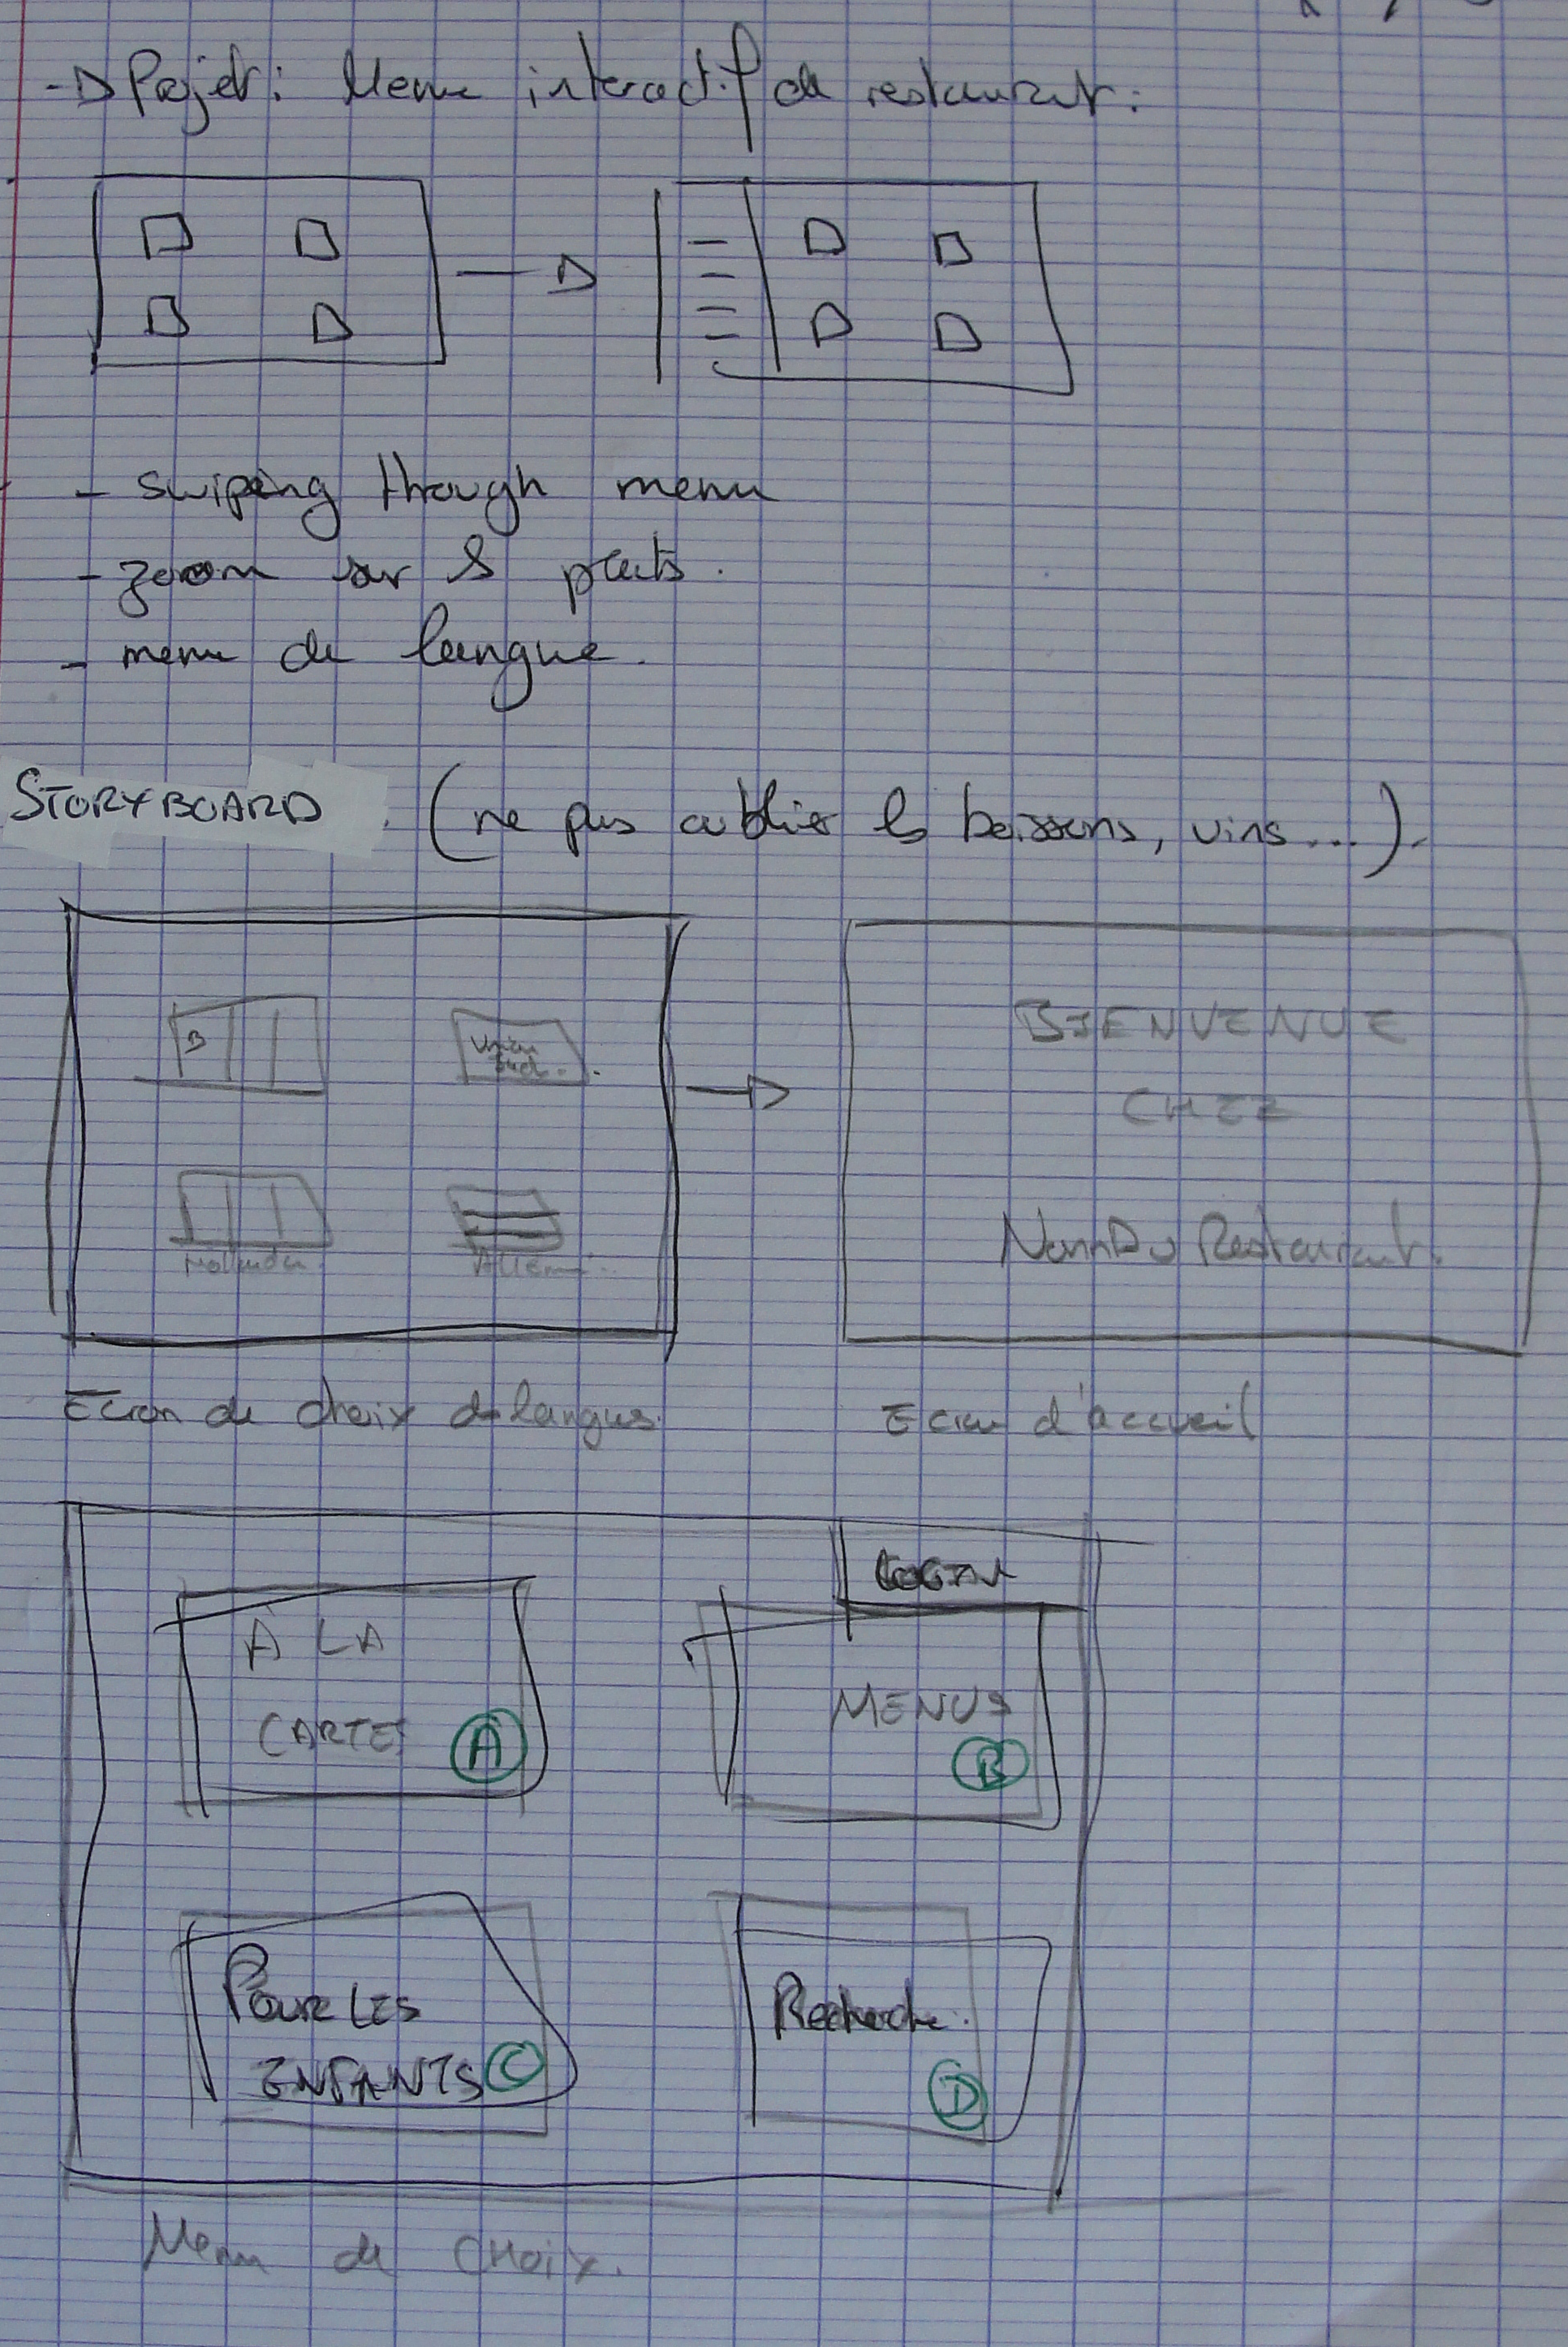 Projet : Menu interactif de restaurant :
- swiping though menu
- zoom sur ls plats.
- menu de langue.
STORYBOARD. (ne pas oublier ls boissons, vins...).
B
Union
BIENVENUE
CHEZ
Nom Du Restaurant.
Ecran de choix de langues.
Ecran d'accueil
LOGIN
À LA
CARTES A
MENUS
B
POUR LES
ENFANTS C
Recherche.
D
Menu de CHOIX.